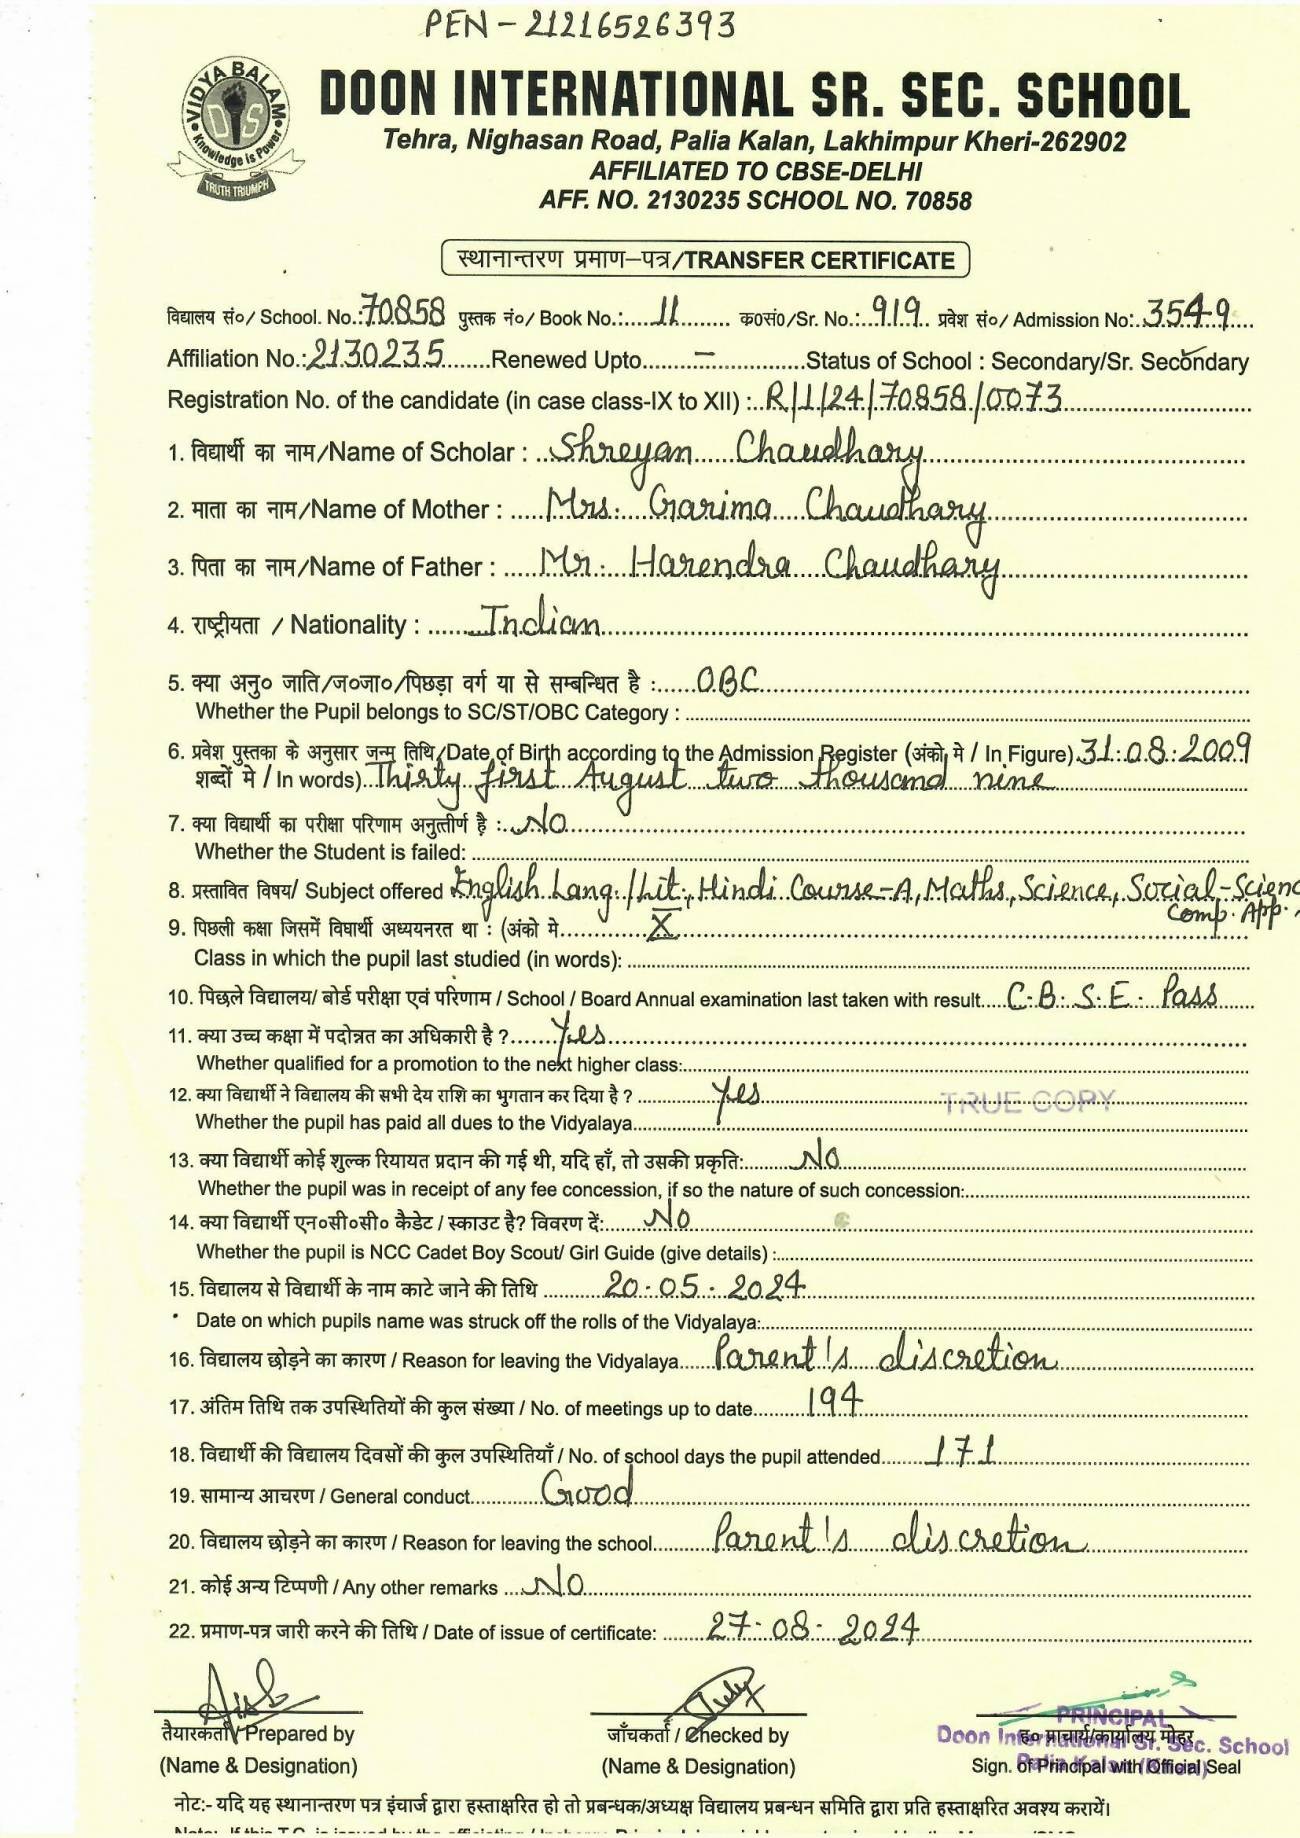 PEN - 21216526393
VIDYA BALAM
DIS
Knowledge is Power
TRUTH TRIUMPH
DOON INTERNATIONAL SR. SEC. SCHOOL
Tehra, Nighasan Road, Palia Kalan, Lakhimpur Kheri-262902
AFFILIATED TO CBSE-DELHI
AFF. NO. 2130235 SCHOOL NO. 70858
स्थानान्तरण प्रमाण–पत्र/TRANSFER CERTIFICATE
विद्यालय सं०/ School. No.: 70858 पुस्तक नं०/ Book No.: 11 क0सं0/Sr. No.: 919 प्रवेश सं०/ Admission No: 3549
Affiliation No.: 2130235 Renewed Upto – Status of School : Secondary/Sr. Secondary
Registration No. of the candidate (in case class-IX to XII) : R/1/24/70858/0073
1. विद्यार्थी का नाम/Name of Scholar : Shreyan Chaudhary
2. माता का नाम/Name of Mother : Mrs. Garima Chaudhary
3. पिता का नाम/Name of Father : Mr. Harendra Chaudhary
4. राष्ट्रीयता / Nationality : Indian
5. क्या अनु० जाति/ज०जा०/पिछड़ा वर्ग या से सम्बन्धित है : OBC
Whether the Pupil belongs to SC/ST/OBC Category :
6. प्रवेश पुस्तका के अनुसार जन्म तिथि/Date of Birth according to the Admission Register (अंको मे / In Figure) 31.08.2009
शब्दों मे / In words) Thirty first August two thousand nine
7. क्या विद्यार्थी का परीक्षा परिणाम अनुत्तीर्ण है : No
Whether the Student is failed:
8. प्रस्तावित विषय/ Subject offered English Lang./Lit., Hindi Course-A, Maths, Science, Social-Scienc
Comp. App.
9. पिछली कक्षा जिसमें विद्यार्थी अध्ययनरत था : (अंको मे X
Class in which the pupil last studied (in words):
10. पिछले विद्यालय/ बोर्ड परीक्षा एवं परिणाम / School / Board Annual examination last taken with result C.B.S.E. Pass
11. क्या उच्च कक्षा में पदोन्नत का अधिकारी है ? Yes
Whether qualified for a promotion to the next higher class:
12. क्या विद्यार्थी ने विद्यालय की सभी देय राशि का भुगतान कर दिया है ? Yes
TRUE COPY
Whether the pupil has paid all dues to the Vidyalaya
13. क्या विद्यार्थी कोई शुल्क रियायत प्रदान की गई थी, यदि हाँ, तो उसकी प्रकृति: No
Whether the pupil was in receipt of any fee concession, if so the nature of such concession:
14. क्या विद्यार्थी एन०सी०सी० कैडेट / स्काउट है? विवरण दें: No
Whether the pupil is NCC Cadet Boy Scout/ Girl Guide (give details) :
15. विद्यालय से विद्यार्थी के नाम काटे जाने की तिथि 20.05.2024
Date on which pupils name was struck off the rolls of the Vidyalaya:
16. विद्यालय छोड़ने का कारण / Reason for leaving the Vidyalaya Parent's discretion
17. अंतिम तिथि तक उपस्थितियों की कुल संख्या / No. of meetings up to date 194
18. विद्यार्थी की विद्यालय दिवसों की कुल उपस्थितियाँ / No. of school days the pupil attended 171
19. सामान्य आचरण / General conduct Good
20. विद्यालय छोड़ने का कारण / Reason for leaving the school Parent's discretion
21. कोई अन्य टिप्पणी / Any other remarks No
22. प्रमाण-पत्र जारी करने की तिथि / Date of issue of certificate: 27.08.2024
PRINCIPAL
Doon International Sr. Sec. School
Palia Kalan (Kheri)
तैयारकर्ता / Prepared by जाँचकर्ता / Checked by ह० प्राचार्य/कार्यालय मोहर
(Name & Designation) (Name & Designation) Sign. of Principal with Official Seal
नोट:- यदि यह स्थानान्तरण पत्र इंचार्ज द्वारा हस्ताक्षरित हो तो प्रबन्धक/अध्यक्ष विद्यालय प्रबन्धन समिति द्वारा प्रति हस्ताक्षरित अवश्य करायें।